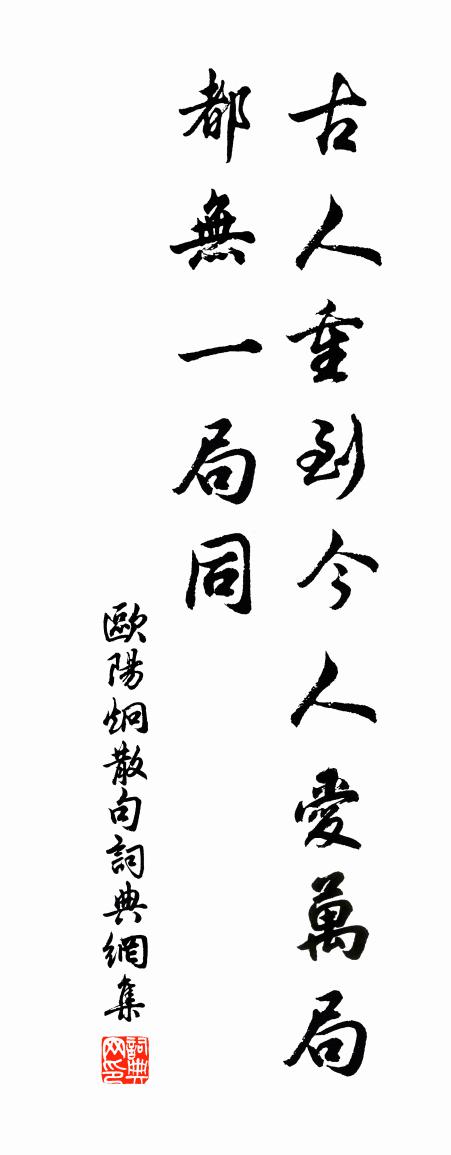 古人重到今人愛萬局
都無一局同
歐陽炯散句詞典網集
詞典网印